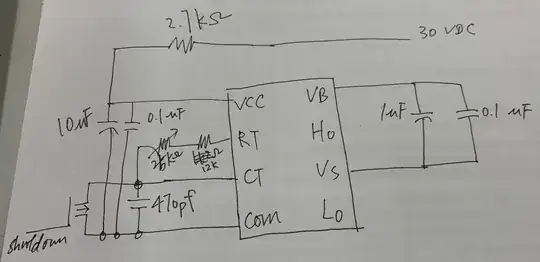 2.7kΩ
30 VDC
10uF
0.1uF
VCC
VB
1uF
0.1 uF
RT
Ho
12K
CT
Vs
470pf
COM
Lo
shutdown